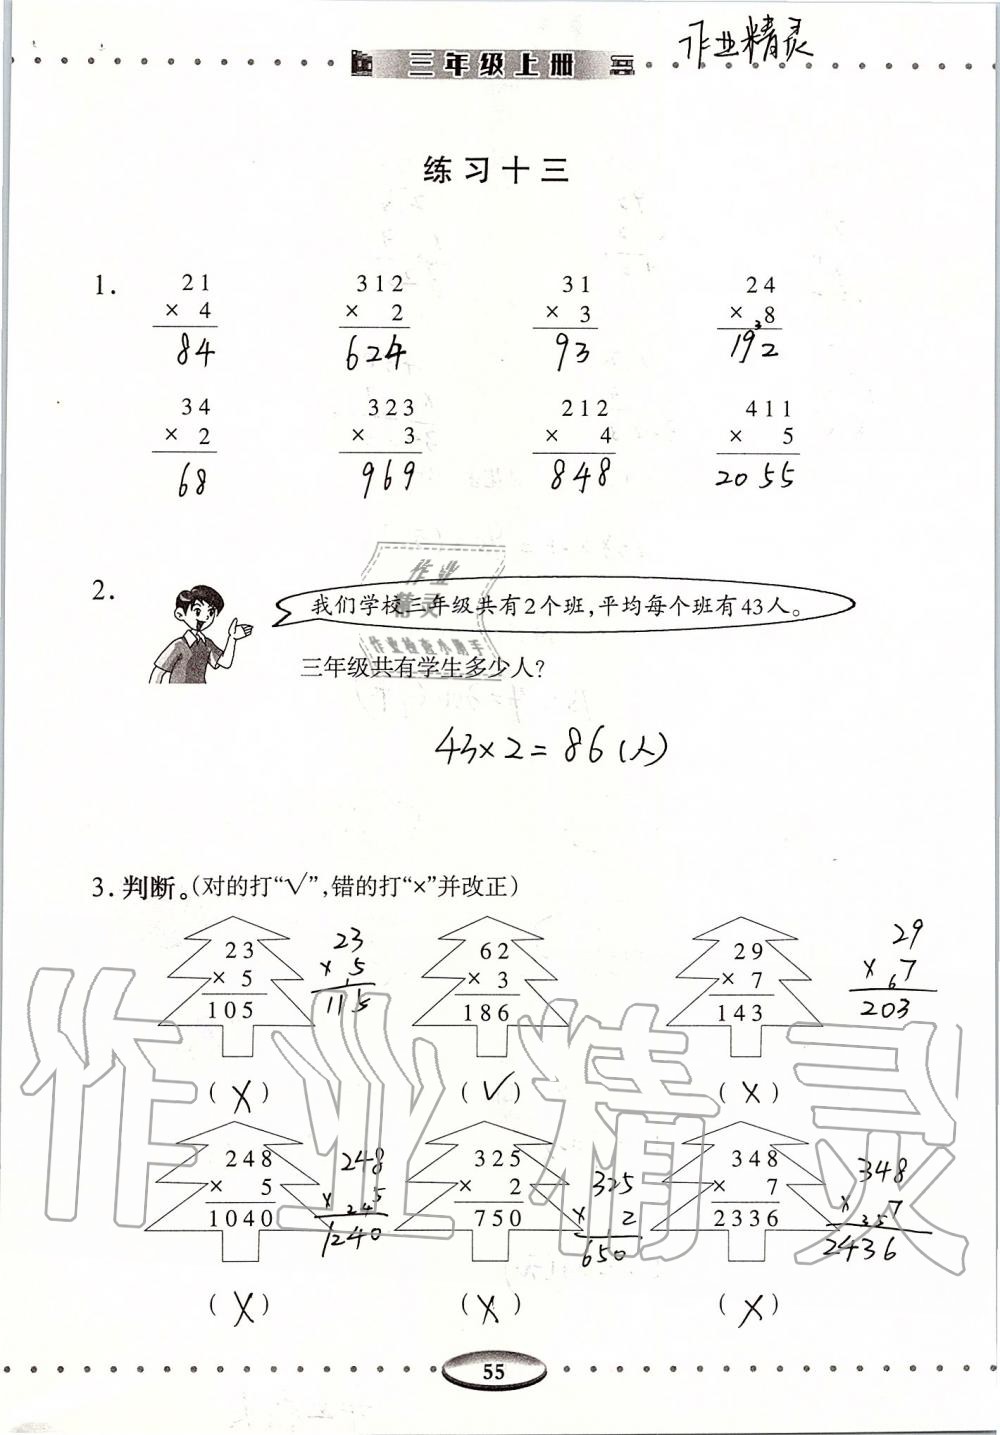 作业精灵
三年级上册
练习十三
1. 21 312 31 24
× 4 × 2 × 3 × 8
84 624 93 19³2
34 323 212 411
× 2 × 3 × 4 × 5
68 969 848 2055
作业
精灵
作业检查小助手
2. 我们学校三年级共有2个班,平均每个班有43人。
三年级共有学生多少人?
43×2=86(人)
3. 判断。(对的打“√”,错的打“×”并改正)
23 23 62 29 29
× 5 × 5 × 3 × 7 × ₆7
105 11¹5 186 143 203
(X) (√) (X)
248 248 325 325 348 348
× 5 × ₂₄5 × 2 × 2 × 7 × ₃₅7
1040 1240 750 650 2336 2436
(X) (X) (X)
作业精灵
55